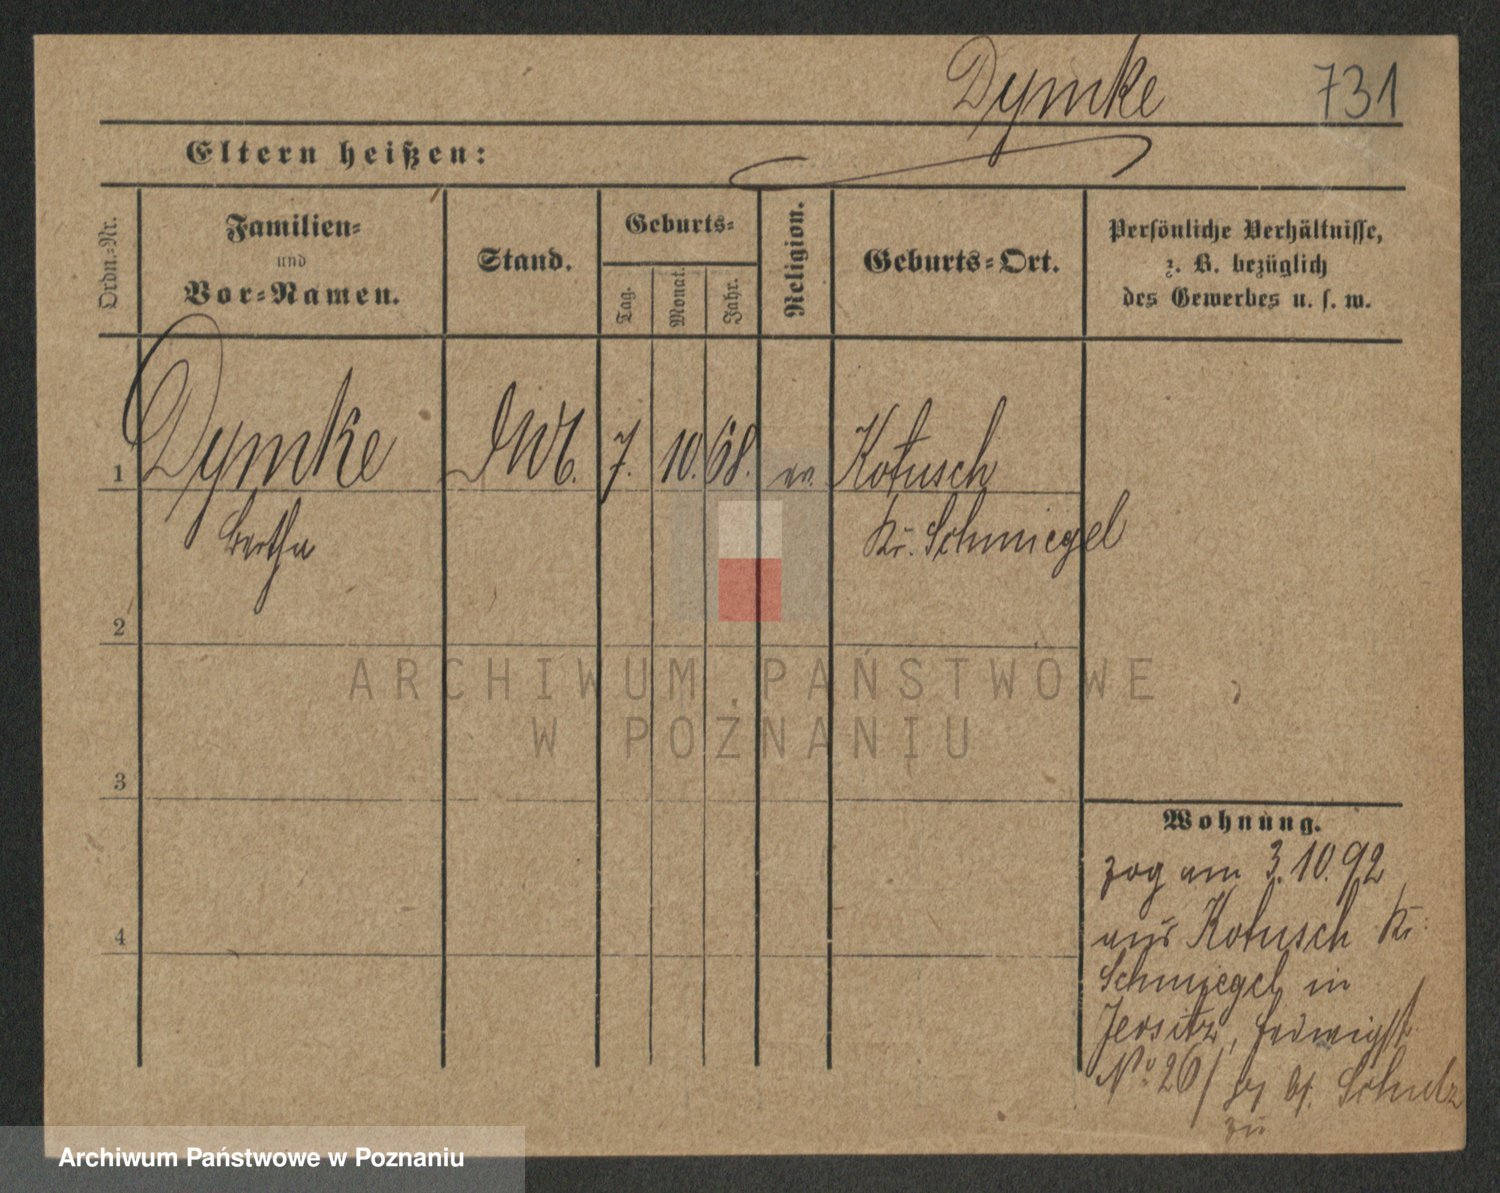 Dymke 731
Eltern heißen:
Ordn.-Nr.
Familien-
und
Vor-Namen.
Stand.
Geburts-
Tag.
Monat.
Jahr.
Religion.
Geburts-Ort.
Persönliche Verhältnisse,
z. B. bezüglich
des Gewerbes u. s. w.
1 Dymke 7. 10. 68. ev. Kotusch
Bertha Kr. Schmiegel
2
3
4
ARCHIWUM PAŃSTWOWE
W POZNANIU
Wohnung.
zog am 3.10.92
aus Kotusch Kr.
Schmiegel in
Jersitz, Hedwigst.
No 26/ Schulz
zu
Archiwum Państwowe w Poznaniu